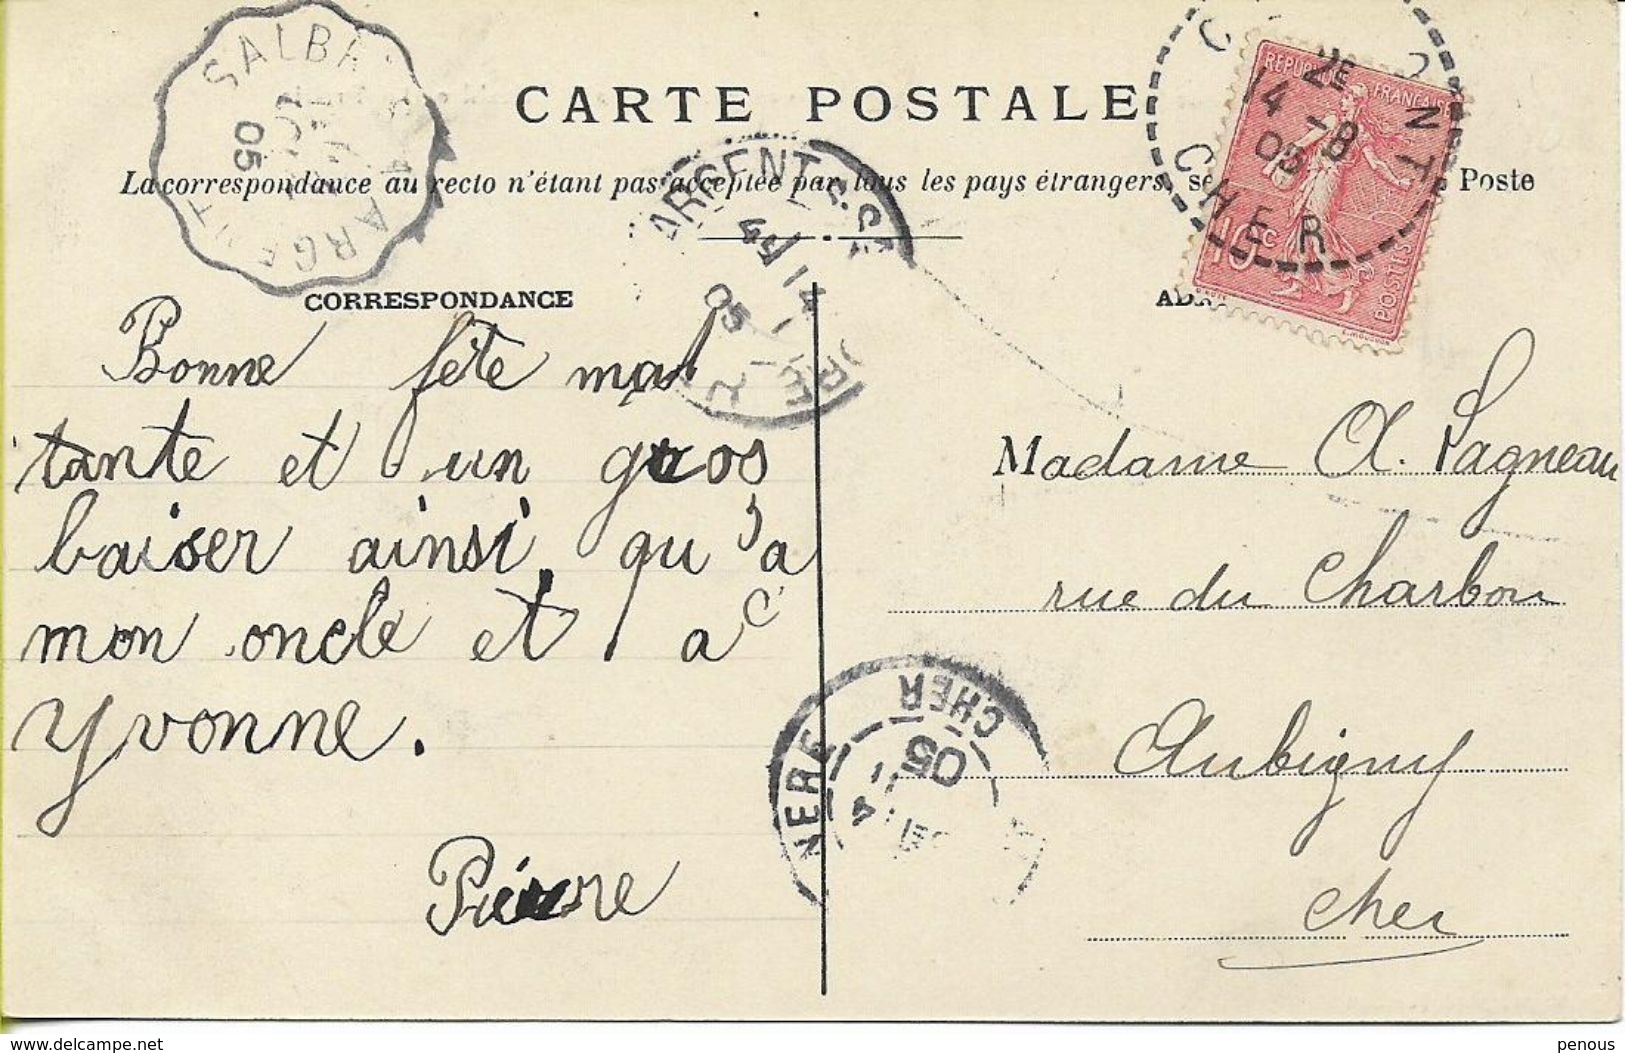 CARTE POSTALE
La correspondance au recto n'étant pas acceptée par tous les pays étrangers, Poste
CORRESPONDANCE
Bonne fête ma
tante et un gros
baiser ainsi qu'à
mon oncle et a
Yvonne.
Pierre
Madame A. Sagneau
rue du Charbon
Aubigny
Cher
REPUBLIQUE FRANÇAISE
10c
POSTES
2E
14 -8
05
CHER
SALBRIS A ARGENT
05
ARGENT-S-S
14
05
NERE
CHER
05
delcampe.net
penous